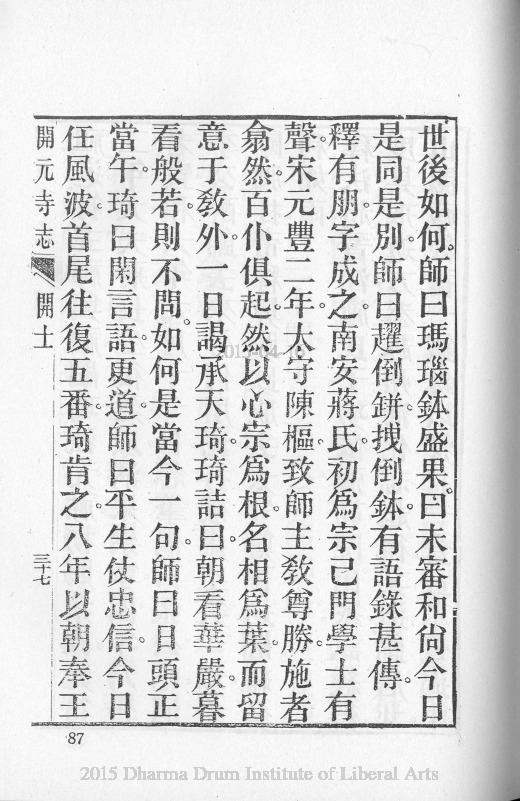 世後如何。師曰瑪瑙鉢盛果。曰未審和尙今日
是同是別。師曰趯倒鉼拽倒鉢。有語錄甚傳。
釋有朋。字成之。南安蔣氏。初爲宗己門學士有
聲。宋元豐二年。太守陳樞致師主敎尊勝。施者
翕然。百仆俱起。然以心宗爲根。名相爲葉。而留
意于敎外。一日謁承天琦。琦詰曰。朝看華嚴。暮
看般若。則不問。如何是當今一句。師曰日頭正
當午。琦曰閑言語。更道。師曰平生仗忠信。今日
任風波。首尾往復五番。琦肯之。八年以朝奉王
開元寺志 開士 三十七
87
2015 Dharma Drum Institute of Liberal Arts